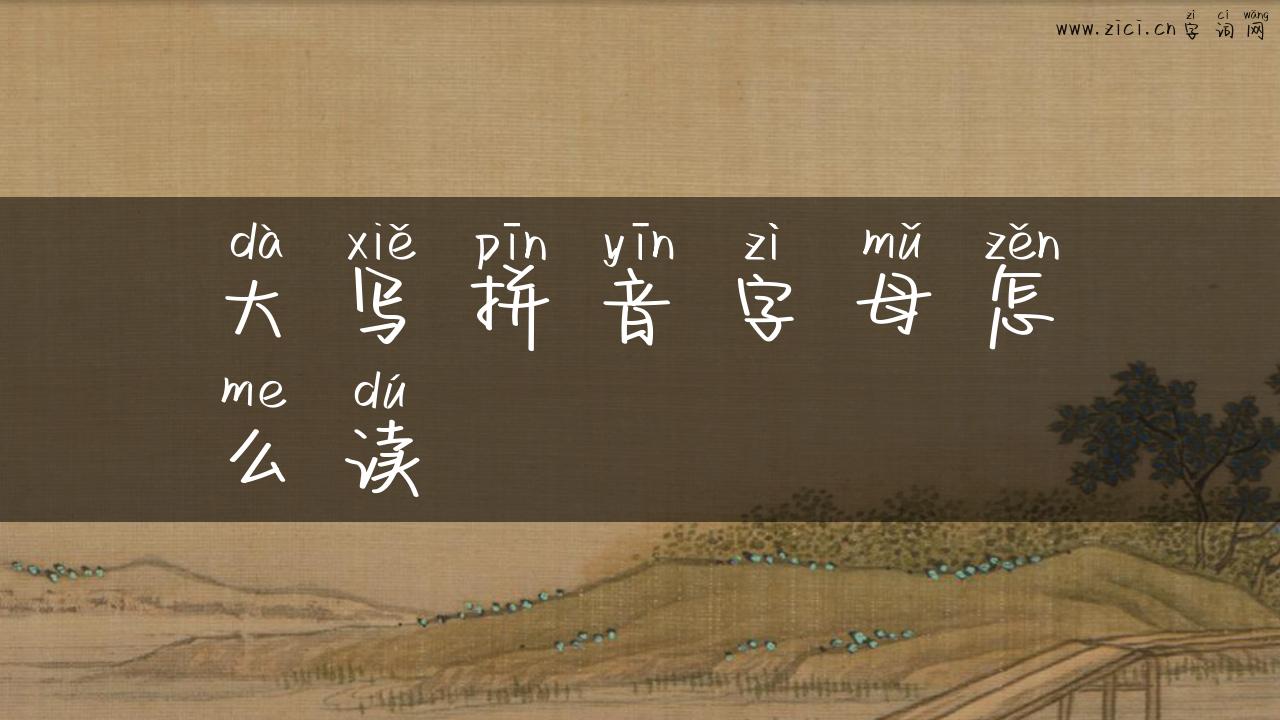 zì cí wǎng
www.zici.cn字词网
dà xiě pīn yīn zì mǔ zěn
大写拼音字母怎
me dú
么读